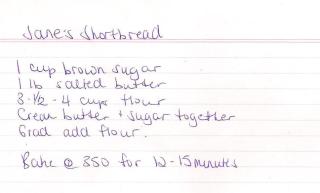 Jane's Shortbread
1 cup brown sugar
1 lb salted butter
3-1/2 - 4 cups flour
Cream butter + sugar together
Grad add flour.
Bake @ 350 for 12-15 minutes